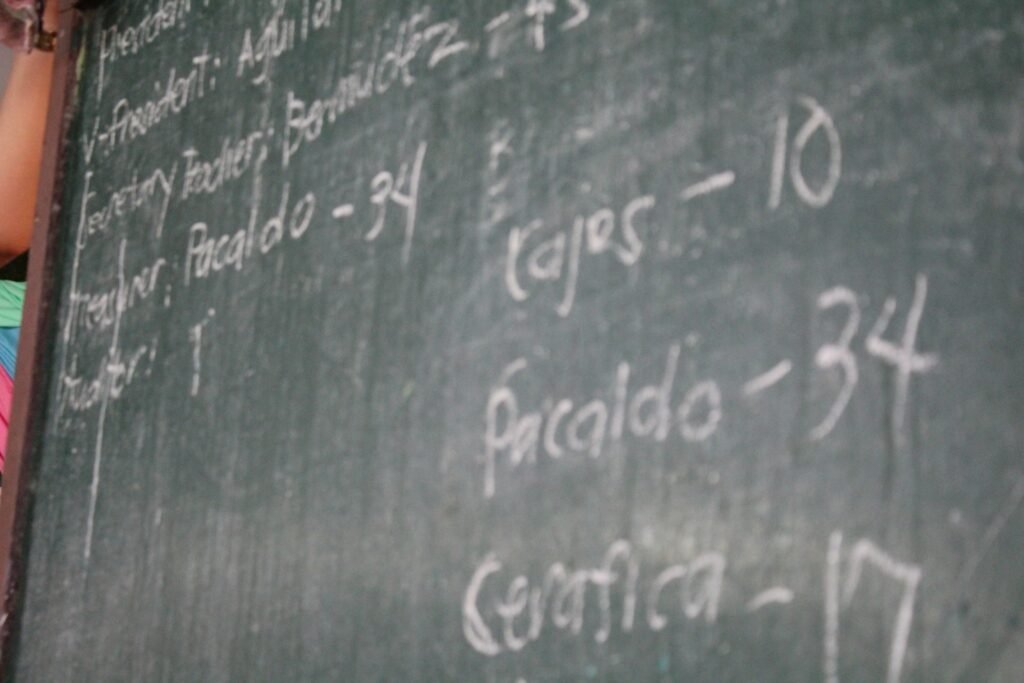 President:
V-President: Aguilar
Secretary Teacher: Bermudez - 45
Treasurer: Pacaldo - 34
Auditor: T
Cajes - 10
Pacaldo - 34
Cerafica - 17